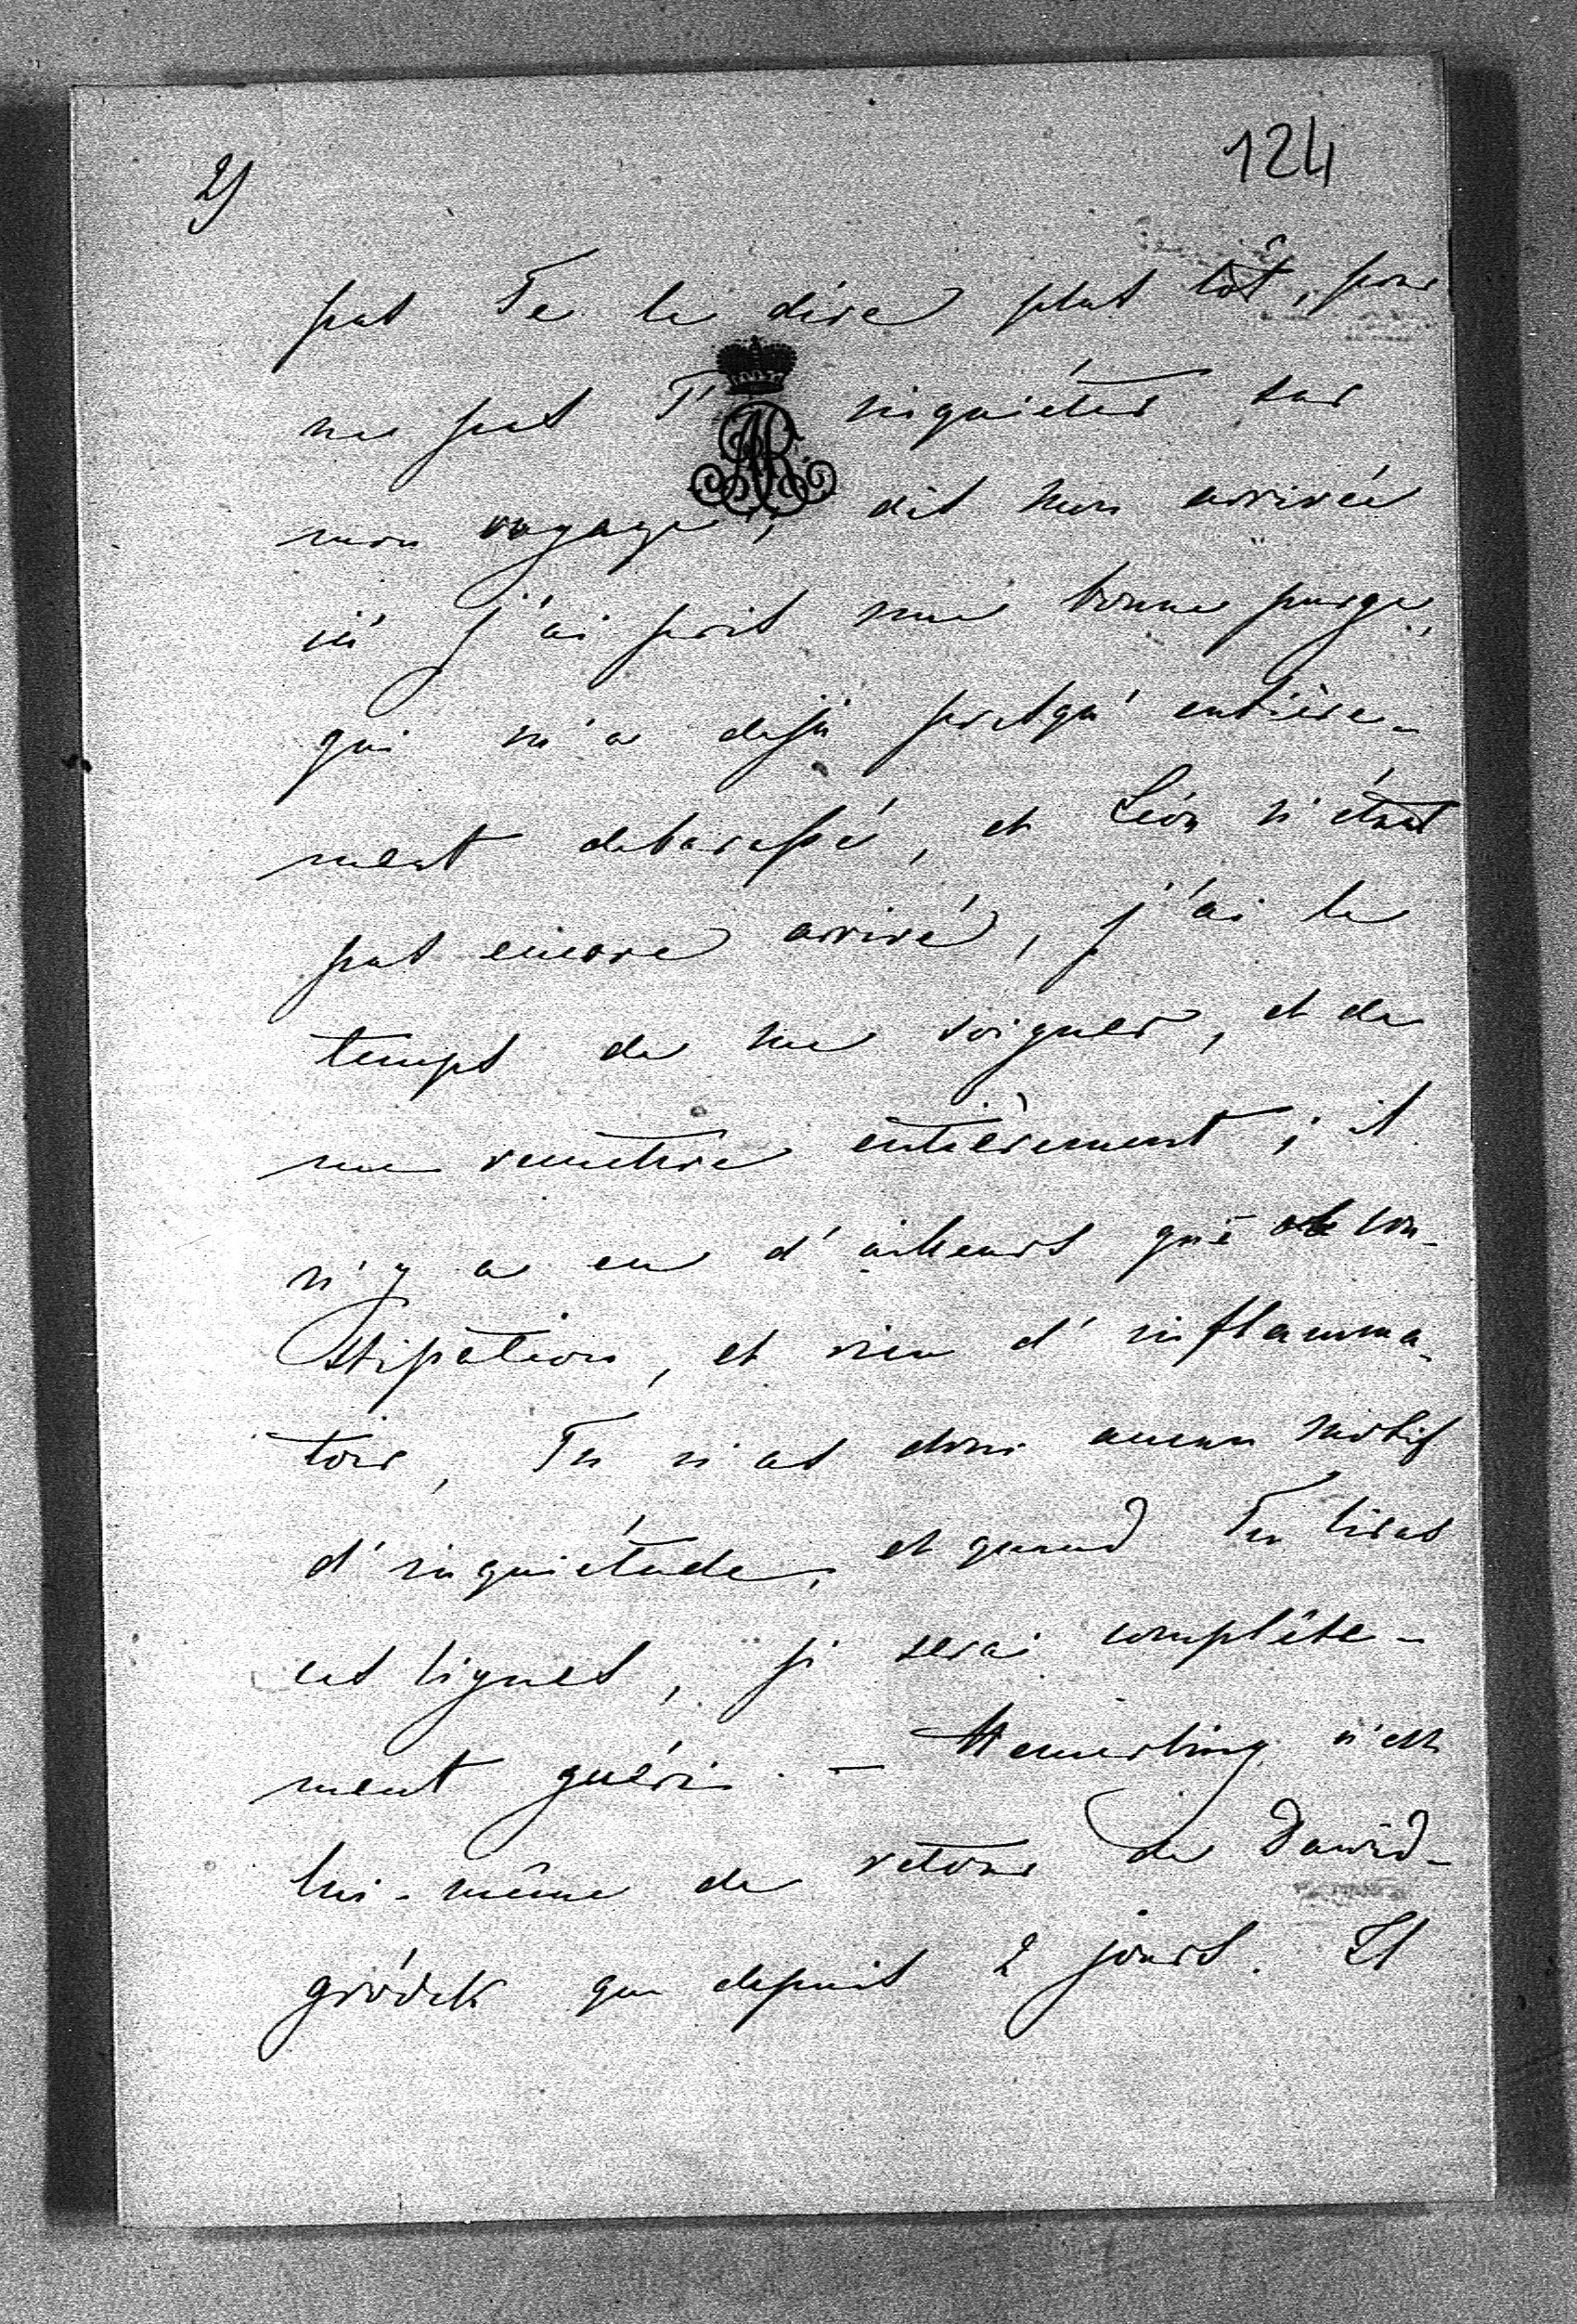 2)
124
pas Te le dire plus tôt, pour
ne pas T'inquiéter sur
mon voyage; dès mon arrivée
ici j'ai pris une bonne purge,
qui m'a déjà presqu' entière-
ment debarassé, et Léon n'étant
pas encore arrivé, j'ai le
temps de me soigner, et de
me remettre entièrement; il
n'y a eu d'ailleurs que con-
stipation, et rien d'inflamma-
toir, Tu n'as donc aucun motif
d'inquiétude, et quand Tu liras
ces lignes, je serai complète-
ment guéri. – Hemerling n'est
lui-même de retour de Dawid-
gródek que depuis 2 jours. Il